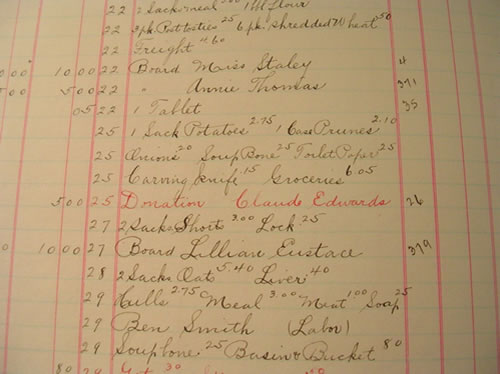 22 2 Sacks meal 1 bbl flour
22 3 pk. Post tosties 25 6 pk. shredded wheat 50
22 Freight 60
00 10 00 22 Board Miss Staley 4
5 00 5 00 22 " Annie Thomas 371
05 22 1 Tablet 35
25 1 Sack Potatoes 2.75 1 Case Prunes 2.10
25 Onions 20 Soup Bone 25 Toilet Paper 25
25 Carving knife .15 Groceries 6.05
5 00 25 Donation Claude Edwards 26
27 2 Sacks Shorts 3.00 Lock .25
0 10 00 27 Board Lillian Eustace 379
28 2 Sacks Oats 5.40 Liver .40
29 Hulls 2.75 Meal 3.00 Meat 1.00 Soap 25
29 Ben Smith (Labor)
29 Soupbone 25 Basin & Bucket 80
80 29